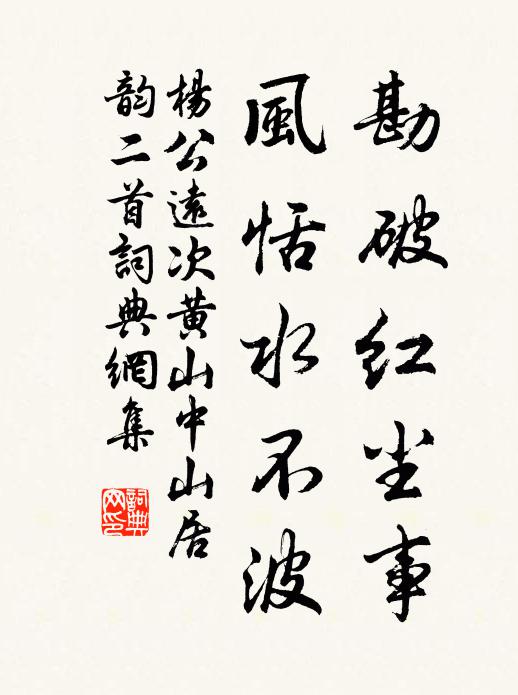 勘破红尘事
風恬水不波
楊公遠次黄山中山居
韵二首詞典網集
詞典网印